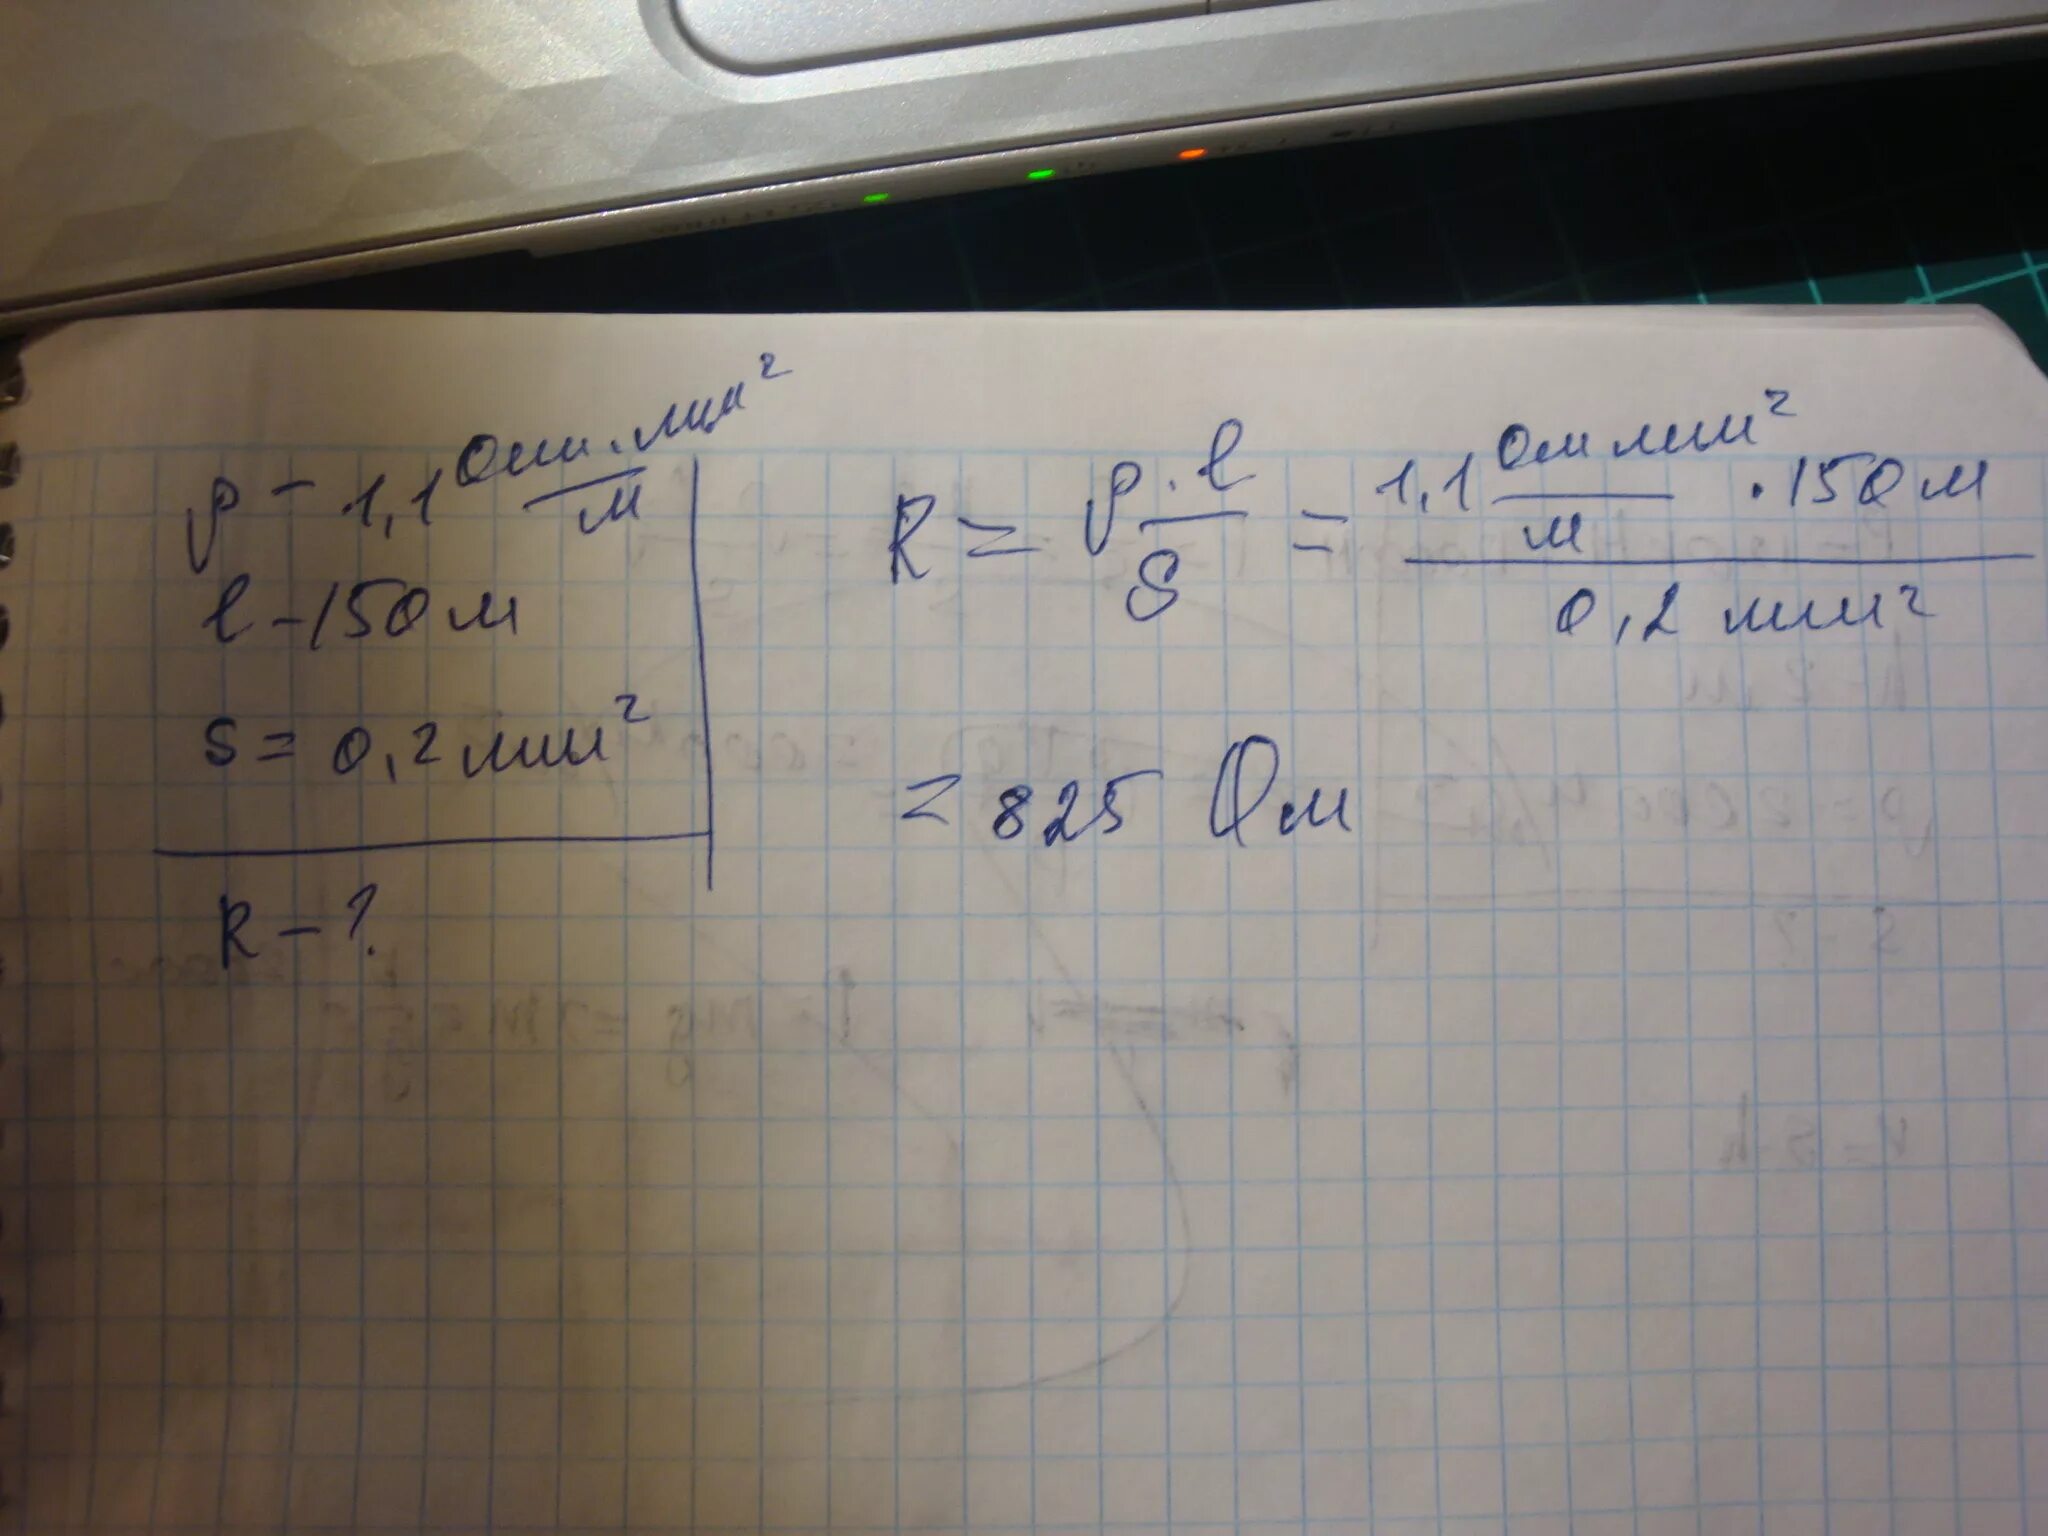 ρ = 1,1 Ом·мм²/м
l - 150 м
S = 0,2 мм²
R - ?
R = ρ·l/S = 1,1 Ом мм²/м · 150 м / 0,2 мм²
= 825 Ом